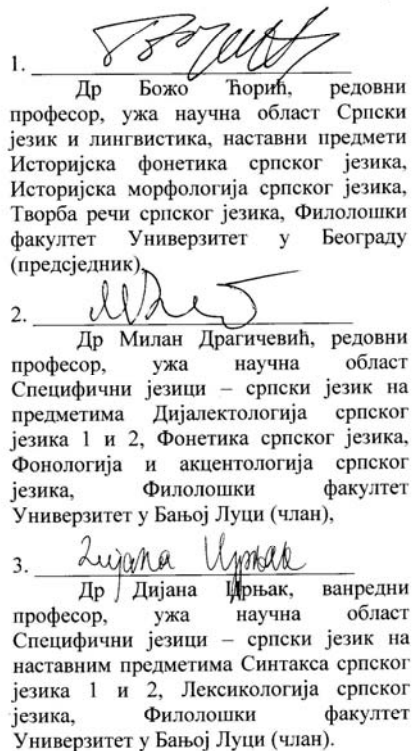 1.
Др Божо Ћорић, редовни
професор, ужа научна област Српски
језик и лингвистика, наставни предмети
Историјска фонетика српског језика,
Историјска морфологија српског језика,
Творба речи српског језика, Филолошки
факултет Универзитет у Београду
(предсједник),
2.
Др Милан Драгичевић, редовни
професор, ужа научна област
Специфични језици – српски језик на
предметима Дијалектологија српског
језика 1 и 2, Фонетика српског језика,
Фонологија и акцентологија српског
језика, Филолошки факултет
Универзитет у Бањој Луци (члан),
3. Дијана Црњак
Др Дијана Црњак, ванредни
професор, ужа научна област
Специфични језици – српски језик на
наставним предметима Синтакса српског
језика 1 и 2, Лексикологија српског
језика, Филолошки факултет
Универзитет у Бањој Луци (члан).